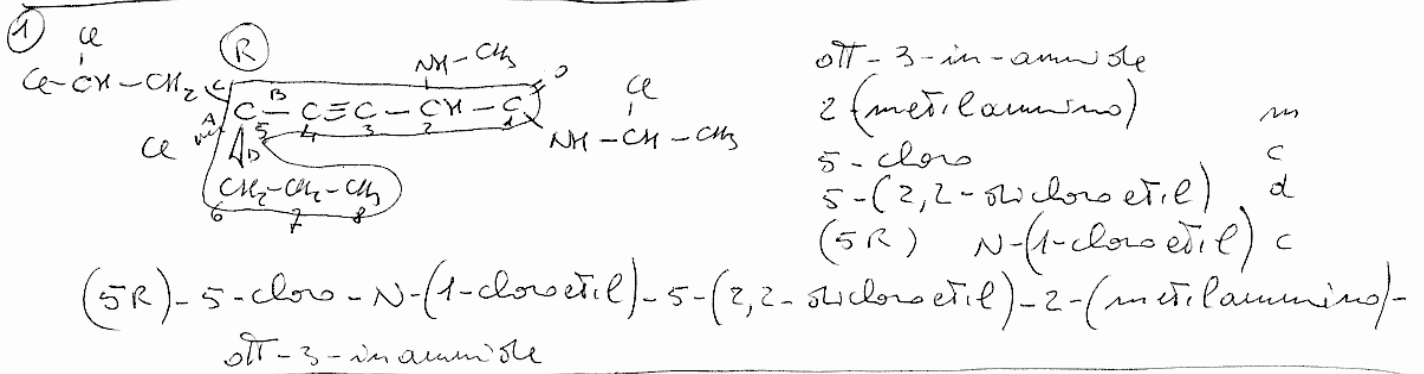 1
Cl
R
NH-CH3
O
Cl-CH-CH2
C
B
C-C≡C-CH-C
Cl
A
5 4 3 2 1
NH-CH-CH3
Cl
D
CH2-CH2-CH3
6 7 8
ott-3-in-ammide
2(metilammino) m
5-cloro c
5-(2,2-dicloroetil) d
(5R) N-(1-cloroetil) c
(5R)-5-cloro-N-(1-cloroetil)-5-(2,2-dicloroetil)-2-(metilammino)-
ott-3-inammide